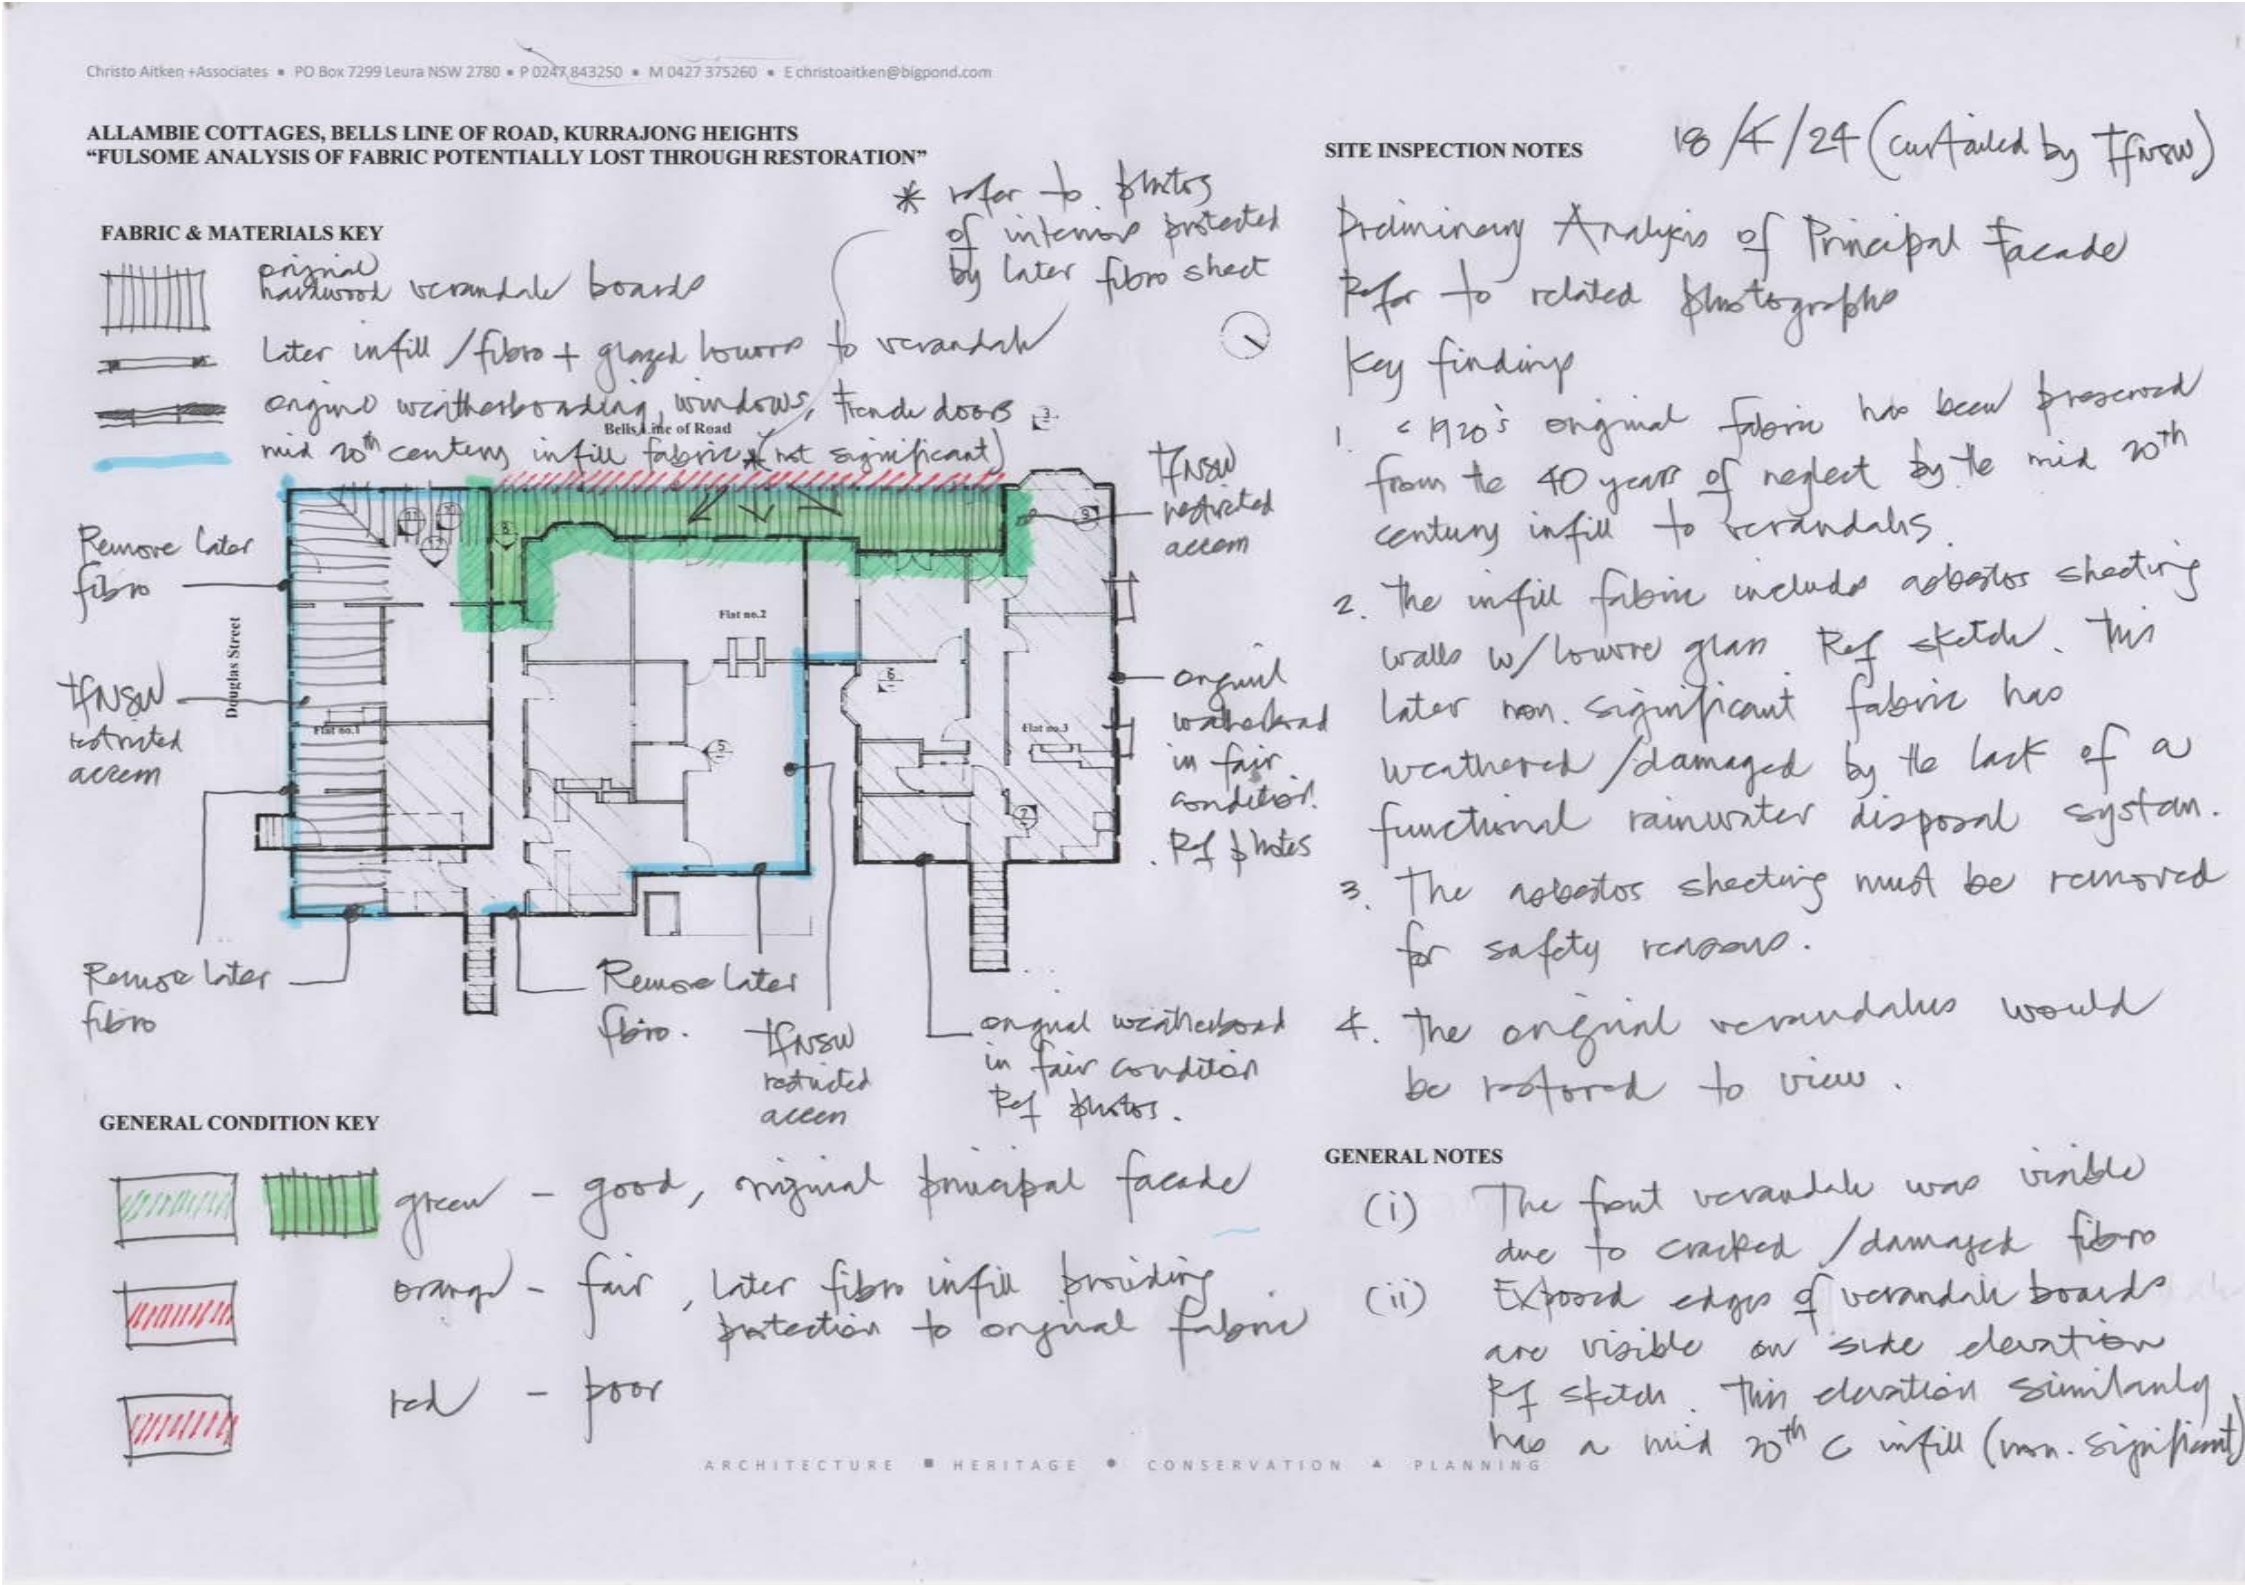 Christo Aitken +Associates ▪ PO Box 7299 Leura NSW 2780 ▪ P 0247 843250 ▪ M 0427 375260 ▪ E christoaitken@bigpond.com
ALLAMBIE COTTAGES, BELLS LINE OF ROAD, KURRAJONG HEIGHTS
“FULSOME ANALYSIS OF FABRIC POTENTIALLY LOST THROUGH RESTORATION”
* refer to photos
of interior protected
by later fibro sheet
FABRIC & MATERIALS KEY
original
hardwood verandah boards
Later infill / fibro + glazed louvre to verandah
original weatherboarding, windows, French doors
mid 20th century infill fabric * (not significant)
Bells Line of Road
3
Remove later
fibro
Douglas Street
TfNSW
restricted
access
Flat no.1
Flat no.2
Flat no.3
11
10
12
8
9
6
5
7
TfNSW
restricted
access
original
weatherboard
in fair
condition.
Ref photos
Remove later
fibro
Remove later
fibro.
TfNSW
restricted
access
original weatherboard
in fair condition
Ref photos.
GENERAL CONDITION KEY
green - good, original principal facade
orange - fair, later fibro infill providing
protection to original fabric
red - poor
SITE INSPECTION NOTES
18/4/24 (curtailed by TfNSW)
Preliminary Analysis of Principal Facade
Refer to related photographs
Key findings
1. < 1920's original fabric has been preserved
from the 40 years of neglect by the mid 20th
century infill to verandahs.
2. The infill fabric include asbestos sheeting
walls w/ louvre glass. Ref sketch. This
later non. significant fabric has
weathered / damaged by the lack of a
functional rainwater disposal system.
3. The asbestos sheeting must be removed
for safety reasons.
4. The original verandahs would
be restored to view.
GENERAL NOTES
(i) The front verandah was visible
due to cracked / damaged fibro
(ii) Exposed edges of verandah boards
are visible on side elevation
Ref sketch. This elevation similarly
has a mid 20th C infill (non. significant)
ARCHITECTURE ■ HERITAGE ● CONSERVATION ▲ PLANNING